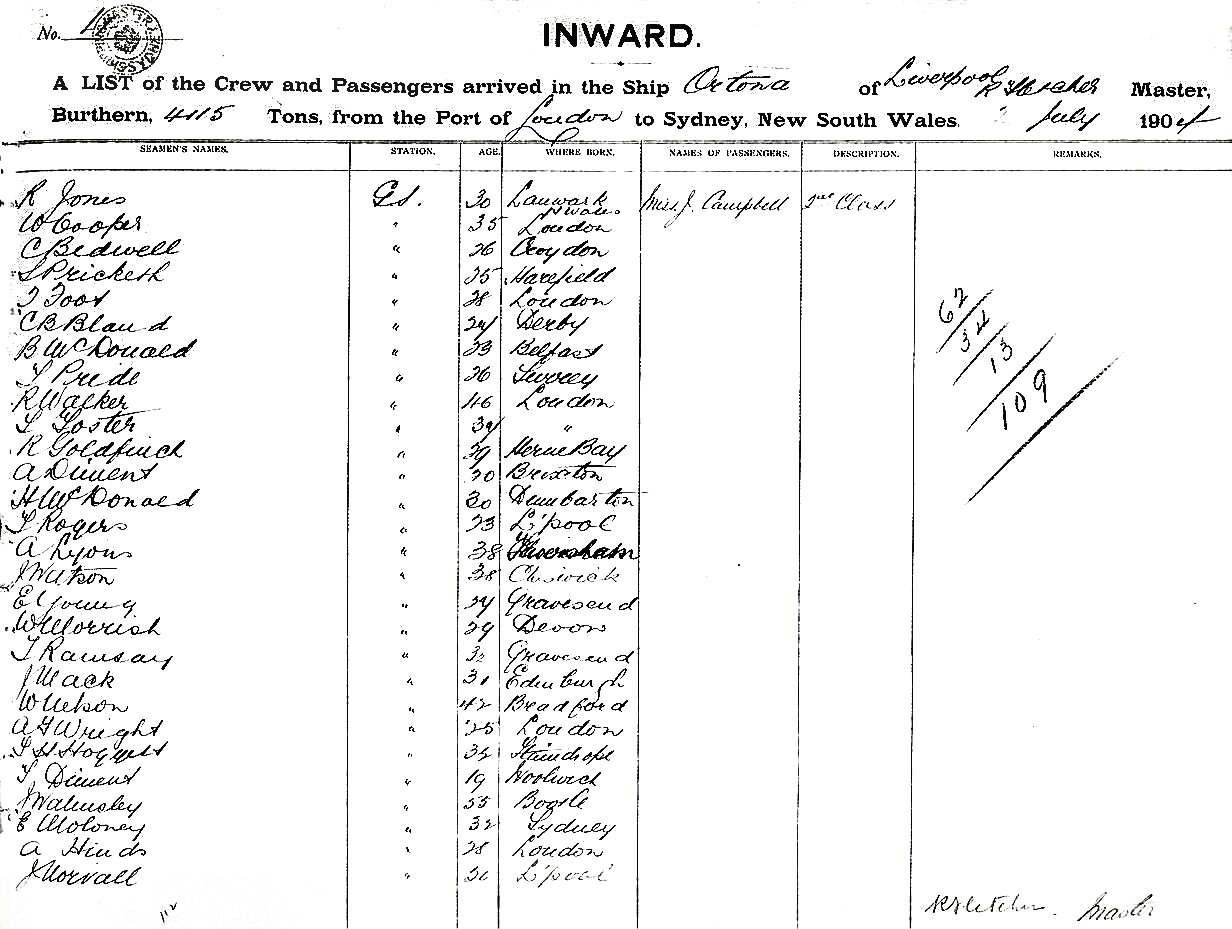 No. 4
INWARD.
A LIST of the Crew and Passengers arrived in the Ship Ortona of Liverpool Master,
Burthern, 4115 Tons, from the Port of London to Sydney, New South Wales. 2 July 1904
SEAMEN'S NAMES. STATION. AGE. WHERE BORN. NAMES OF PASSENGERS. DESCRIPTION. REMARKS.
R Jones G.S. 30 Lanwark N Wales Mrs. J. Campbell 2nd Class
W Cooper " 35 London
C Bedwell " 26 Croydon
S Pricketh " 25 Harefield
T Foot " 28 London
C B Bland " 24 Derby
B McDonald " 23 Belfast
T Pride " 26 Surrey
R Walker " 46 London
T Foster " 34 "
R Goldfinch " 39 Herne Bay
A Diment " 20 Brixton
H McDonald " 30 Dumbarton
T Rogers " 23 L'pool
A Lyons " 38 Faversham
J Watson " 38 Chiswick
E Young " 24 Gravesend
W Morrish " 29 Devon
T Ramsay " 32 Gravesend
J Mack " 31 Edinburgh
W Nelson " 42 Bradford
A F Wright " 25 London
T H Hoggett " 32 Staindrope
T Diment " 19 Woolwich
J Walmsley " 55 Bootle
E Moloney " 32 Sydney
A Hinds " 28 London
J Norvall " 31 L'pool
62
34
13
109
Master